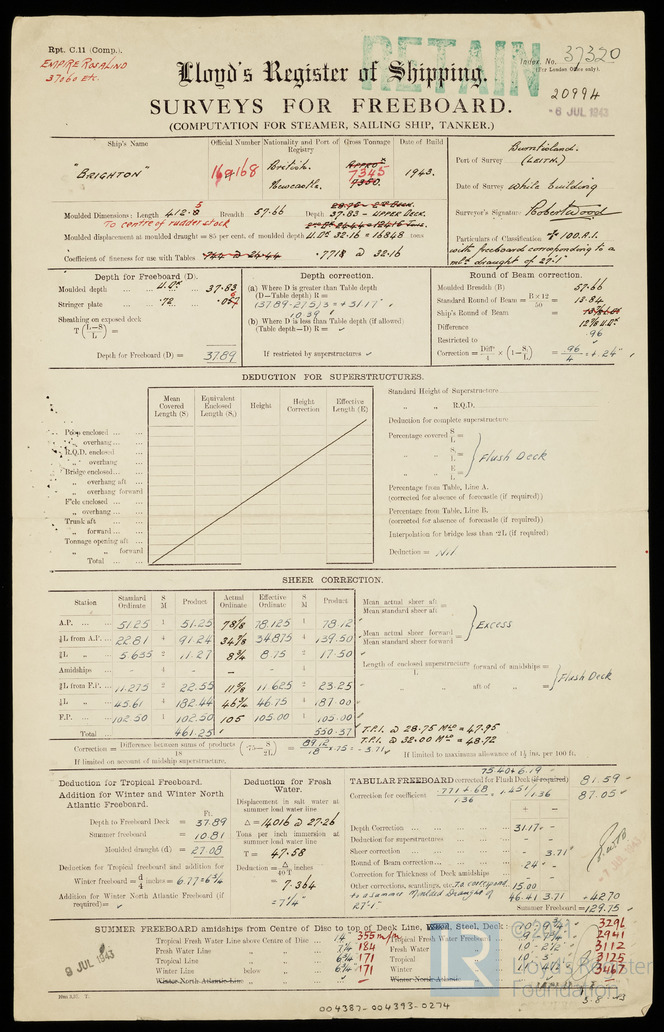 Rpt. C.11 (Comp.).
EMPIRE ROSALIND
37060 Etc.
RETAIN
Index. No. 37320
(For London Office only).
20994
- 6 JUL 1943
Lloyd's Register of Shipping.
SURVEYS FOR FREEBOARD.
(COMPUTATION FOR STEAMER, SAILING SHIP, TANKER.)
Ship's Name
Official Number
Nationality and Port of Registry
Gross Tonnage
Date of Build
"BRIGHTON"
168168
British.
Newcastle.
7345
1943.
Port of Survey Burntisland. (LEITH.)
Date of Survey while Building
Surveyor's Signature Robert Wood
Particulars of Classification + 100.A.1.
with freeboard corresponding to a
mld draught of 27'-1"
Moulded Dimensions: Length 412.8 5 Breadth 57.66 Depth 37.83 - UPPER DECK.
To centre of rudder stock
Moulded displacement at moulded draught = 85 per cent. of moulded depth U.Dk 32.16 = 16848 tons
Coefficient of fineness for use with Tables .7718 @ 32.16
Depth for Freeboard (D).
Moulded depth ... U.Dk ... 37.83
Stringer plate ... .72
Sheathing on exposed deck
T (L-S / L) =
Depth for Freeboard (D) = 37.89
Depth correction.
(a) Where D is greater than Table depth
(D-Table depth) R =
(37.89-27.51)3 = +31.17
10.39
(b) Where D is less than Table depth (if allowed)
(Table depth-D) R =
If restricted by superstructures
Round of Beam correction.
Moulded Breadth (B) 57.66
Standard Round of Beam = B x 12 / 50 = 13.84
Ship's Round of Beam =
Difference 12⅞ U.Dk
Restricted to .96
Correction = Diffce / 4 x (1 - S₁/L) = .96 / 4 = +.24
DEDUCTION FOR SUPERSTRUCTURES.
Mean Covered Length (S)
Equivalent Enclosed Length (S₁)
Height
Height Correction
Effective Length (E)
Poop enclosed ...
" overhang ...
R.Q.D. enclosed
" overhang
Bridge enclosed ...
" overhang aft
" overhang forward
F'cle enclosed ...
" overhang ...
Trunk aft ...
" forward ...
Tonnage opening aft ...
" " forward
Total ...
Standard Height of Superstructure
" " R.Q.D.
Deduction for complete superstructure
Percentage covered S/L =
" " S₁/L =
" " E/L =
Flush Deck
Percentage from Table, Line A.
(corrected for absence of forecastle (if required))
Percentage from Table, Line B.
(corrected for absence of forecastle (if required))
Interpolation for bridge less than ·2L (if required)
Deduction = Nil
SHEER CORRECTION.
Station
Standard Ordinate
S M
Product
Actual Ordinate
Effective Ordinate
S M
Product
A.P. ... 51.25 1 51.25 78⅛ 78.125 1 78.12
⅙L from A.P. ... 22.81 4 91.24 34⅞ 34.875 4 139.50
⅓L " ... 5.635 2 11.27 8¾ 8.75 2 17.50
Amidships ... 4 - - - 4 -
⅓L from F.P. ... 11.275 2 22.55 11⅝ 11.625 2 23.25
⅙L " ... 45.61 4 182.44 46¾ 46.75 4 187.00
F.P. ... 102.50 1 102.50 105 105.00 1 105.00
Total ... 461.25 550.37
Mean actual sheer aft
Mean standard sheer aft =
Mean actual sheer forward
Mean standard sheer forward =
Excess
Length of enclosed superstructure forward of amidships =
L
" " aft of " =
Flush Deck
T.P.I. @ 28.75 Mld = 47.95
T.P.I. @ 32.00 Mld = 48.72
Correction = Difference between sums of products / 18 (·75 - S/2L) = 89.12 / 18 x .75 = -3.71
If limited on account of midship superstructure.
If limited to maximum allowance of 1½ ins. per 100 ft.
Deduction for Tropical Freeboard.
Addition for Winter and Winter North
Atlantic Freeboard.
Ft.
Depth to Freeboard Deck = 37.89
Summer freeboard = 10.81
Moulded draught (d) = 27.08
Deduction for Tropical freeboard and addition for
Winter freeboard = d/4 inches = 6.77 = 6¾
Addition for Winter North Atlantic Freeboard (if
required) =
Deduction for Fresh
Water.
Displacement in salt water at
summer load water line
Δ = 14016 @ 27.26
Tons per inch immersion at
summer load water line
T = 47.58
Deduction = Δ / 40 T inches
= 7.364
= 7¼"
TABULAR FREEBOARD corrected for Flush Deck (if required) 81.59
Correction for coefficients .771 + .68 / 1.36 = 1.451 / 1.36 87.05
+ -
Depth Correction ... 31.17 -
Deduction for superstructures ... - -
Sheer correction ... - 3.71
Round of Beam correction ... .24 -
Correction for Thickness of Deck amidships
Other corrections, scantlings, etc. To correspond 15.00
to a summer Moulded Draught of 27'-1"
46.41 3.71 +42.70
Summer Freeboard = 129.75
SUMMER FREEBOARD amidships from Centre of Disc to top of Deck Line, Wood, Steel, Deck:
Tropical Fresh Water Line above Centre of Disc ... 14" 355 m/m
Fresh Water Line " " ... 7¼ 184
Tropical Line " " ... 6¾ 171
Winter Line below " ... 6¾ 171
Winter North Atlantic Line " "
Tropical Fresh Water Freeboard
Fresh Water "
Tropical "
Winter "
Winter North Atlantic "
3296
2941
3112
3125
3467
9 JUL 1943
LR
© 2021
Lloyd's Register
Foundation
004387-004393-0274